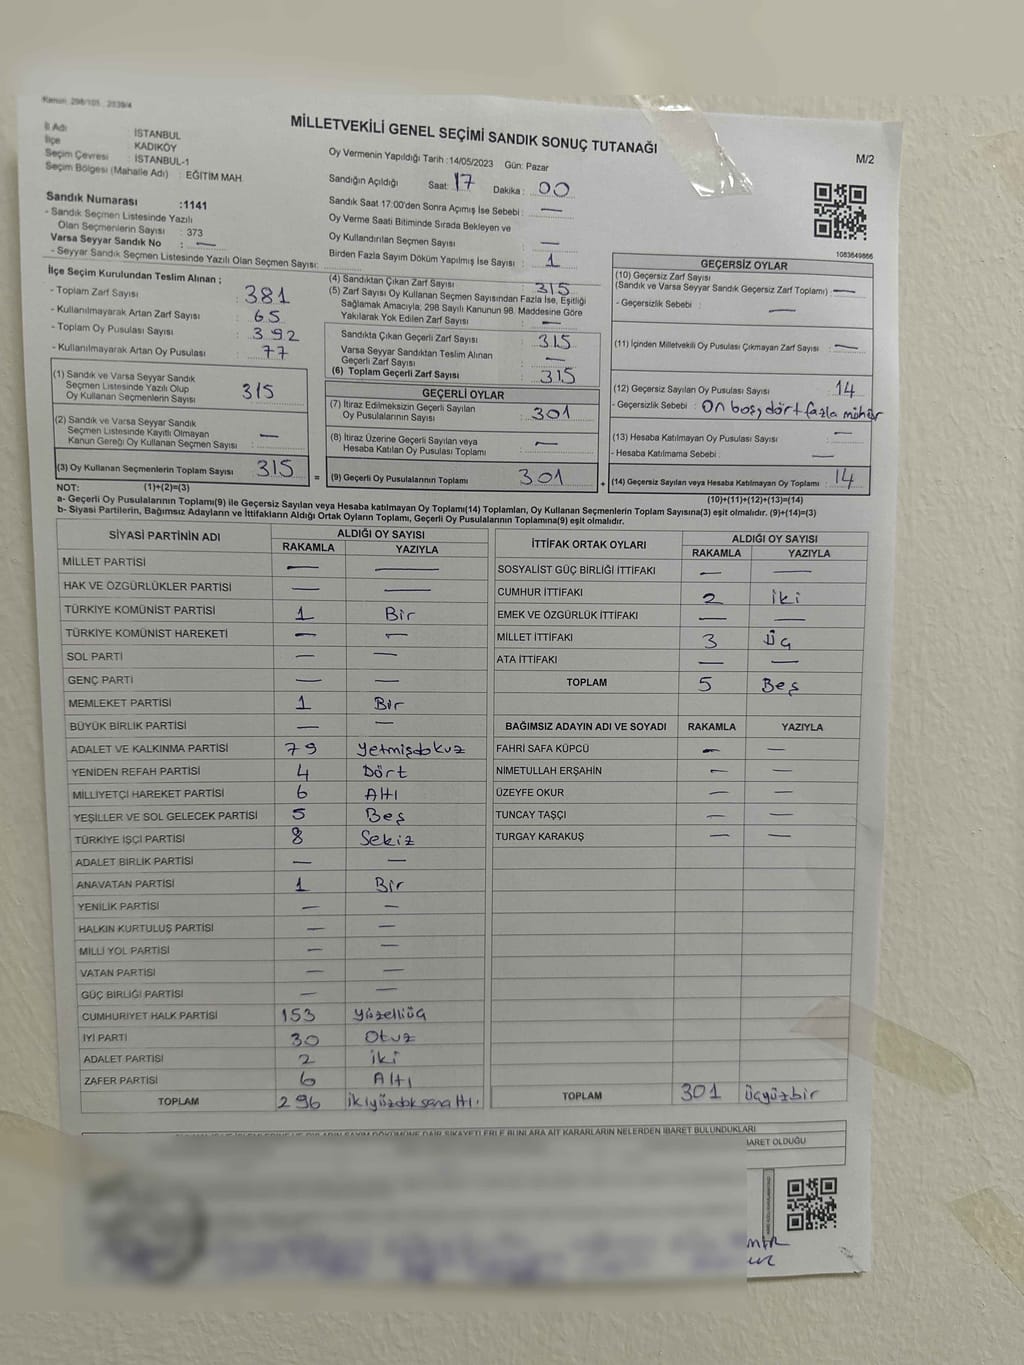 Kanun: 298/105 , 2839/4
MİLLETVEKİLİ GENEL SEÇİMİ SANDIK SONUÇ TUTANAĞI
M/2
İl Adı : İSTANBUL
İlçe : KADIKÖY
Seçim Çevresi : İSTANBUL-1
Seçim Bölgesi (Mahalle Adı) : EĞİTİM MAH.
Sandık Numarası : 1141
- Sandık Seçmen Listesinde Yazılı
Olan Seçmenlerin Sayısı : 373
Varsa Seyyar Sandık No : —
- Seyyar Sandık Seçmen Listesinde Yazılı Olan Seçmen Sayısı:
Oy Vermenin Yapıldığı Tarih : 14/05/2023 Gün: Pazar
Sandığın Açıldığı Saat: 17 Dakika : 00
Sandık Saat 17:00'den Sonra Açımış İse Sebebi : —
Oy Verme Saati Bitiminde Sırada Bekleyen ve
Oy Kullandırılan Seçmen Sayısı : —
Birden Fazla Sayım Döküm Yapılmış İse Sayısı : 1
1083649866
İlçe Seçim Kurulundan Teslim Alınan ;
- Toplam Zarf Sayısı : 381
- Kullanılmayarak Artan Zarf Sayısı : 65
- Toplam Oy Pusulası Sayısı : 392
- Kullanılmayarak Artan Oy Pusulası : 77
(1) Sandık ve Varsa Seyyar Sandık
Seçmen Listesinde Yazılı Olup
Oy Kullanan Seçmenlerin Sayısı : 315
(2) Sandık ve Varsa Seyyar Sandık
Seçmen Listesinde Kayıtlı Olmayan
Kanun Gereği Oy Kullanan Seçmen Sayısı : —
(3) Oy Kullanan Seçmenlerin Toplam Sayısı : 315
(4) Sandıktan Çıkan Zarf Sayısı : 315
(5) Zarf Sayısı Oy Kullanan Seçmen Sayısından Fazla İse, Eşitliği
Sağlamak Amacıyla, 298 Sayılı Kanunun 98. Maddesine Göre
Yakılarak Yok Edilen Zarf Sayısı : —
Sandıkta Çıkan Geçerli Zarf Sayısı : 315
Varsa Seyyar Sandıktan Teslim Alınan
Geçerli Zarf Sayısı : —
(6) Toplam Geçerli Zarf Sayısı : 315
GEÇERLİ OYLAR
(7) İtiraz Edilmeksizin Geçerli Sayılan
Oy Pusulalarının Sayısı : 301
(8) İtiraz Üzerine Geçerli Sayılan veya
Hesaba Katılan Oy Pusulası Toplamı : —
= (9) Geçerli Oy Pusulalarının Toplamı : 301 +
GEÇERSİZ OYLAR
(10) Geçersiz Zarf Sayısı
(Sandık ve Varsa Seyyar Sandık Geçersiz Zarf Toplamı) : —
- Geçersizlik Sebebi : —
(11) İçinden Milletvekili Oy Pusulası Çıkmayan Zarf Sayısı : —
(12) Geçersiz Sayılan Oy Pusulası Sayısı : 14
- Geçersizlik Sebebi : On boş, dört fazla mühür
(13) Hesaba Katılmayan Oy Pusulası Sayısı : —
- Hesaba Katılmama Sebebi : —
(14) Geçersiz Sayılan veya Hesaba Katılmayan Oy Toplamı : 14
NOT: (1)+(2)=(3) (10)+(11)+(12)+(13)=(14)
a- Geçerli Oy Pusulalarının Toplamı(9) ile Geçersiz Sayılan veya Hesaba katılmayan Oy Toplamı(14) Toplamları, Oy Kullanan Seçmenlerin Toplam Sayısına(3) eşit olmalıdır. (9)+(14)=(3)
b- Siyasi Partilerin, Bağımsız Adayların ve İttifakların Aldığı Ortak Oyların Toplamı, Geçerli Oy Pusulalarının Toplamına(9) eşit olmalıdır.
SİYASİ PARTİNİN ADI ALDIĞI OY SAYISI
RAKAMLA YAZIYLA
MİLLET PARTİSİ — —
HAK VE ÖZGÜRLÜKLER PARTİSİ — —
TÜRKİYE KOMÜNİST PARTİSİ 1 Bir
TÜRKİYE KOMÜNİST HAREKETİ — —
SOL PARTİ — —
GENÇ PARTİ — —
MEMLEKET PARTİSİ 1 Bir
BÜYÜK BİRLİK PARTİSİ — —
ADALET VE KALKINMA PARTİSİ 79 yetmişdokuz
YENİDEN REFAH PARTİSİ 4 Dört
MİLLİYETÇİ HAREKET PARTİSİ 6 Altı
YEŞİLLER VE SOL GELECEK PARTİSİ 5 Beş
TÜRKİYE İŞÇİ PARTİSİ 8 Sekiz
ADALET BİRLİK PARTİSİ — —
ANAVATAN PARTİSİ 1 Bir
YENİLİK PARTİSİ — —
HALKIN KURTULUŞ PARTİSİ — —
MİLLİ YOL PARTİSİ — —
VATAN PARTİSİ — —
GÜÇ BİRLİĞİ PARTİSİ — —
CUMHURİYET HALK PARTİSİ 153 yüzelliüç
İYİ PARTİ 30 Otuz
ADALET PARTİSİ 2 iki
ZAFER PARTİSİ 6 Altı
TOPLAM 296 ikiyüzdoksanaltı
İTTİFAK ORTAK OYLARI ALDIĞI OY SAYISI
RAKAMLA YAZIYLA
SOSYALİST GÜÇ BİRLİĞİ İTTİFAKI — —
CUMHUR İTTİFAKI 2 iki
EMEK VE ÖZGÜRLÜK İTTİFAKI — —
MİLLET İTTİFAKI 3 Üç
ATA İTTİFAKI — —
TOPLAM 5 Beş
BAĞIMSIZ ADAYIN ADI VE SOYADI RAKAMLA YAZIYLA
FAHRİ SAFA KÜPCÜ — —
NİMETULLAH ERŞAHİN — —
ÜZEYFE OKUR — —
TUNCAY TAŞÇI — —
TURGAY KARAKUŞ — —
TOPLAM 301 üçyüzbir
SAYIM DÖKÜMÜNE DAİR ŞİKAYETLERLE BUNLARA AİT KARARLARIN NELERDEN İBARET BULUNDUKLARI
İBARET OLDUĞU